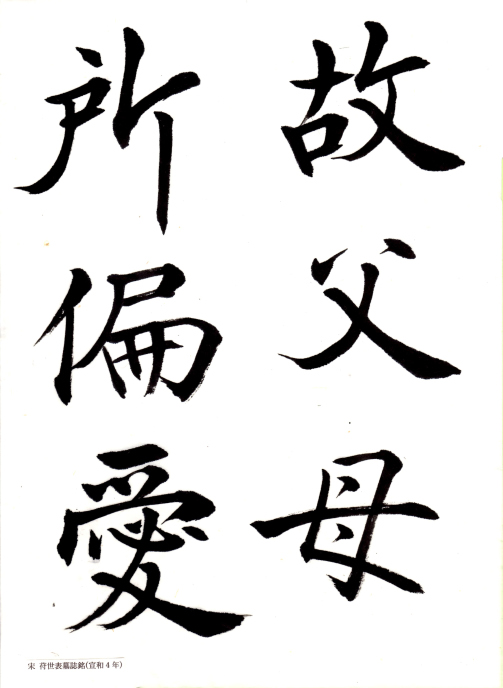 故父母
所偏愛
宋 苻世表墓誌銘(宣和4年)